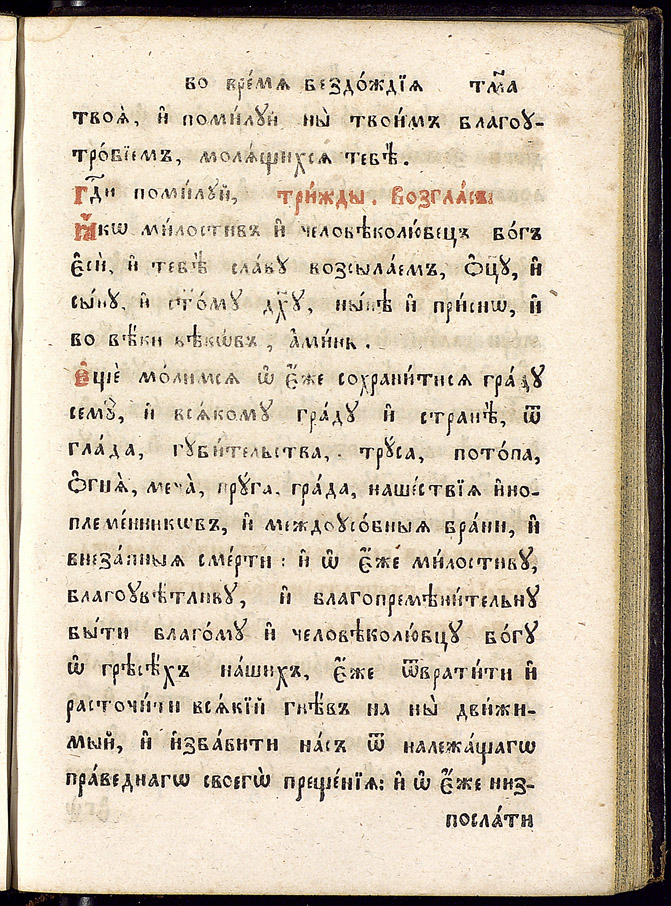 во вре́мѧ бездо́ждїѧ тм҃а
твоѧ̀, и҆ поми́лꙋй ны̀ твои́мъ благоꙋ-
тро́бїемъ, молѧ́щихсѧ тебѣ̀.
Гд҇и поми́лꙋй, три́жды. Возгла́съ:
Ꙗ҆́кѡ ми́лостивъ и҆ человѣколю́бецъ бо́гъ
є҆сѝ, и҆ тебѣ̀ сла́вꙋ возсыла́емъ, ѻ҆ц҃ꙋ̀, и҆
сы́нꙋ, и҆ ст҃о́мꙋ дх҃ꙋ, ны́нѣ и҆ при́снѡ, и҆
во вѣ́ки вѣкѡ́въ, а҆ми́нь.
Є҆щѐ мо́лимсѧ ѡ҆ є҆́же сохрани́тисѧ гра́дꙋ
семꙋ̀, и҆ всѧ́комꙋ гра́дꙋ и҆ странѣ̀, ѿ
гла́да, гꙋби́тельства, трꙋ́са, пото́па,
ѻ҆гнѧ̀, меча̀, прꙋ́га, гра́да, наше́ствїѧ и҆но-
племе́нникѡвъ, и҆ междоꙋсо́бныѧ бра́ни, и҆
внеза́пныѧ сме́рти: и҆ ѡ҆ є҆́же ми́лостивꙋ,
благоꙋвѣ́тливꙋ, и҆ благопремѣни́тельнꙋ
бы́ти благо́мꙋ и҆ человѣколю́бцꙋ бо́гꙋ
ѡ҆ грѣсѣ́хъ на́шихъ, є҆́же ѿврати́ти и҆
расточи́ти всѧ́кїй гнѣ́въ на ны̀ дви́жи-
мый, и҆ и҆зба́вити на́съ ѿ належа́щагѡ
пра́веднагѡ своегѡ̀ преще́нїѧ: и҆ ѡ҆ є҆́же низ-
посла́ти